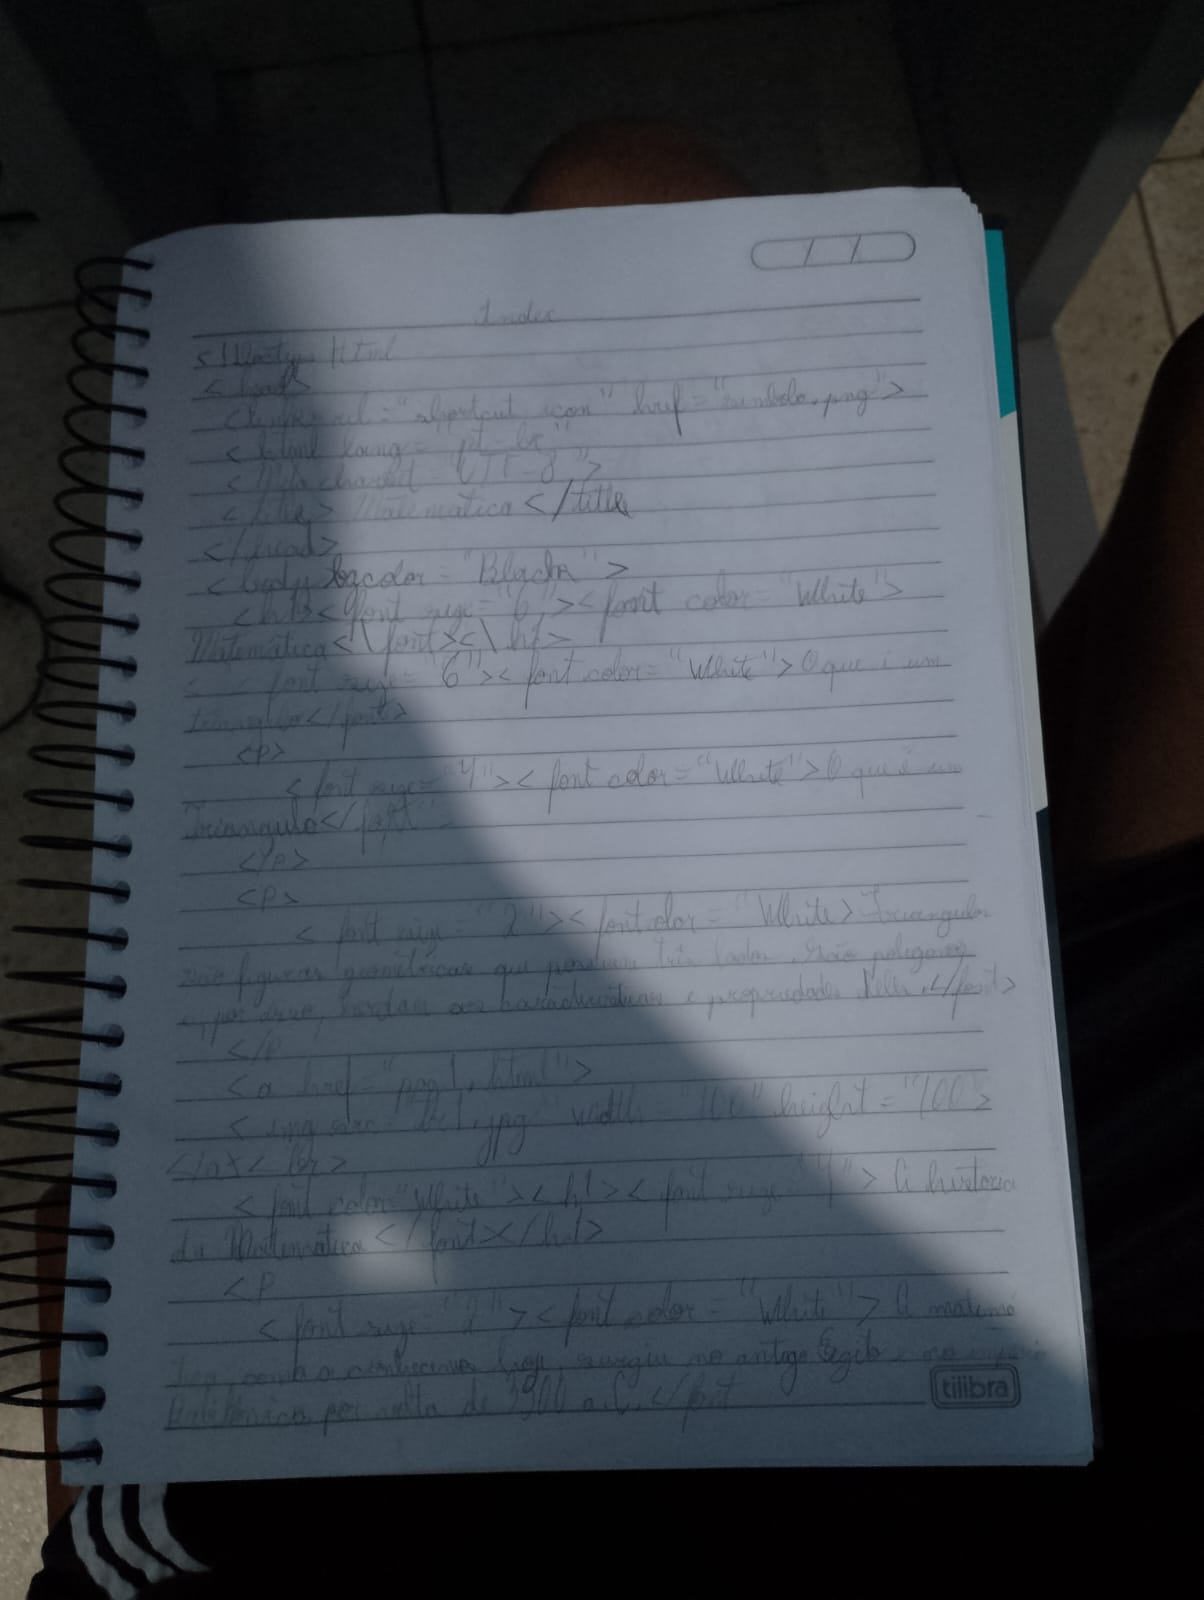 Index
<!Doctype Html
<head>
<link rel="shortcut icon" href="simbolo.png">
<html lang="pt-br"
<Meta charset="UTF-8">
<title> Matematica </title
</head>
<body bgcolor="Black">
<h1><font size="6"><font color="White">
Matemática<\font><\h1>
<font size="6"><font color="White"> O que é um
triangulo</font>
<p>
<font size="4"><font color="White"> O que é um
Triangulo</font
</p>
<p>
<font size="2"><font color="White> Triangulos
são figuras geométricas que possuem três lados. São polegonos
e, por isso, herdam as características e propriedades deles.</font>
</p
<a href="pag1.html">
<img src= jpg" width="100" height="100>
</a><br>
<font color="White"><h1><font size="4"> A historia
da Matemática</font></h1>
<P
<font size="2"><font color="White"> A matemá
tica, como a conhecemos hoje, surgiu no antigo Egito e no
Babilônico por volta de 3500 a.C. </font
tilibra